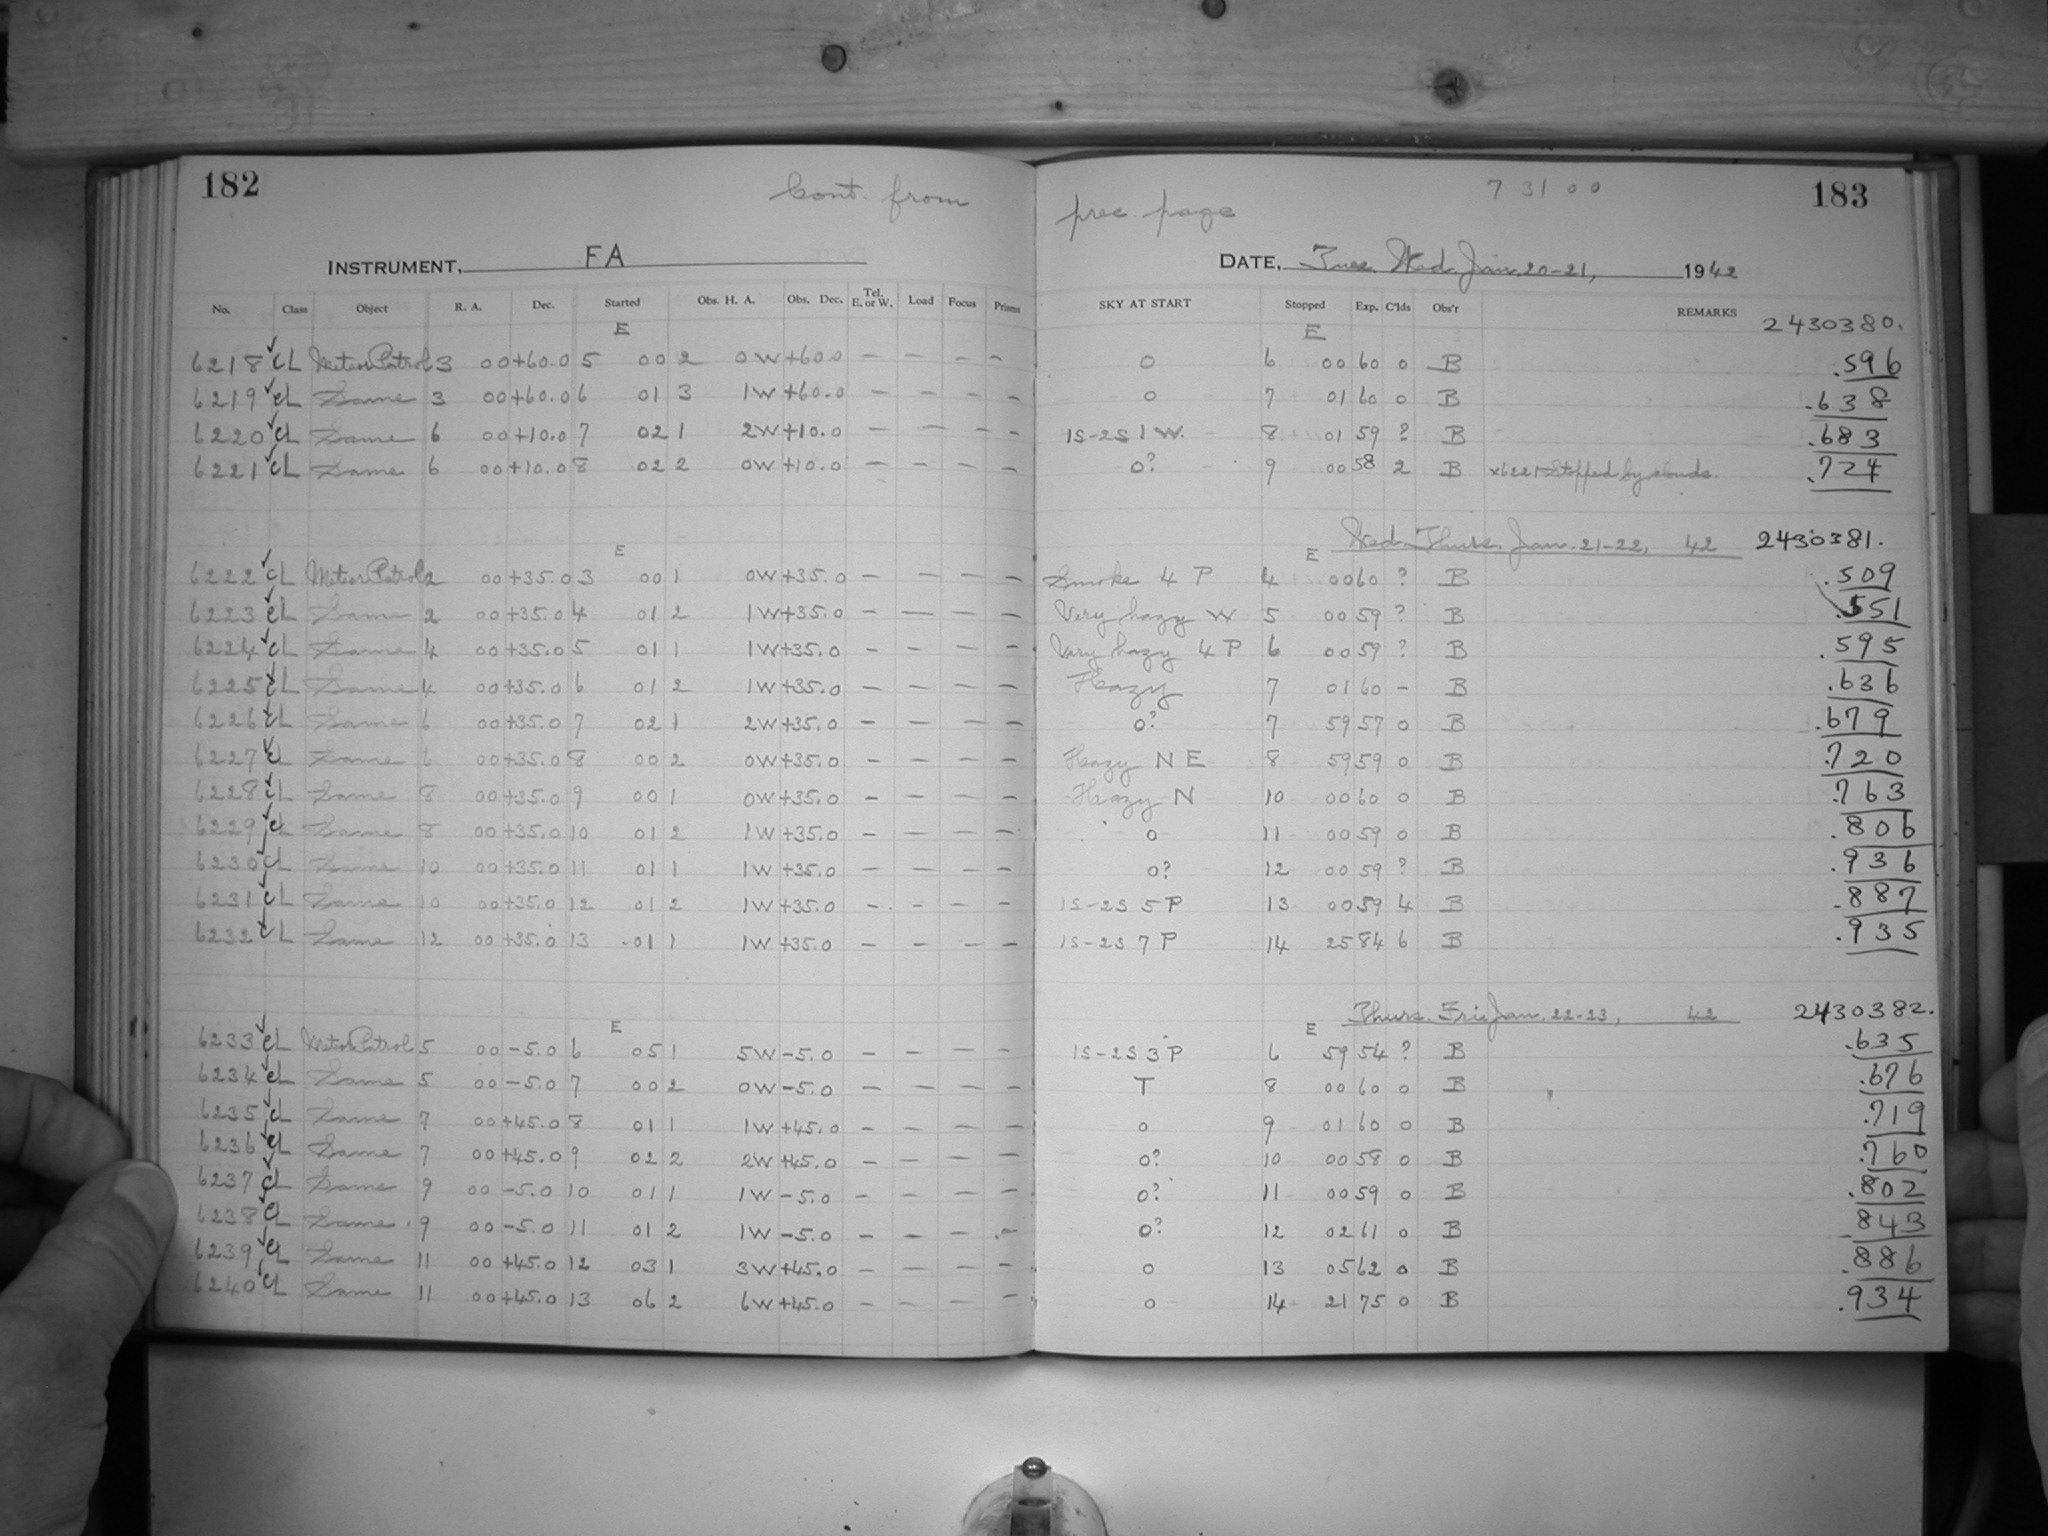 182 Cont. from prec. page 7 31 00 183
INSTRUMENT, FA DATE, Tues. Wed. Jan. 20-21, 1942
No. Class Object R. A. Dec. Started Obs. H. A. Obs. Dec. Tel. E. or W. Load Focus Prisms SKY AT START Stopped Exp. C'lds Obs'r REMARKS
E E 2430380.
6218 ✓ CL Meteor Patrol 3 00 +60.0 5 00 2 0W +60.0 – – – – 0 6 00 60 0 B .596
6219 ✓ CL Same 3 00 +60.0 6 01 3 1W +60.0 – – – – 0 7 01 60 0 B .638
6220 ✓ CL Same 6 00 +10.0 7 02 1 2W +10.0 – – – – 1S-2S 1 W. 8 01 59 ? B .683
6221 ✓ CL Same 6 00 +10.0 8 02 2 0W +10.0 – – – – 0? 9 00 58 2 B x6221 Stopped by clouds. .724
E E Wed. Thurs. Jan. 21-22, 42 2430381.
6222 ✓ CL Meteor Patrol 2 00 +35.0 3 00 1 0W +35.0 – – – – Smoke 4 P 4 00 60 ? B .509
6223 ✓ CL Same 2 00 +35.0 4 01 2 1W +35.0 – – – – Very hazy W 5 00 59 ? B .551
6224 ✓ CL Same 4 00 +35.0 5 01 1 1W +35.0 – – – – Very hazy 4 P 6 00 59 ? B .595
6225 ✓ CL Same 4 00 +35.0 6 01 2 1W +35.0 – – – – Hazy 7 01 60 – B .636
6226 ✓ CL Same 6 00 +35.0 7 02 1 2W +35.0 – – – – 0? 7 59 57 0 B .679
6227 ✓ CL Same 6 00 +35.0 8 00 2 0W +35.0 – – – – Hazy N E 8 59 59 0 B .720
6228 ✓ CL Same 8 00 +35.0 9 00 1 0W +35.0 – – – – Hazy N 10 00 60 0 B .763
6229 ✓ CL Same 8 00 +35.0 10 01 2 1W +35.0 – – – – 0 11 00 59 0 B .806
6230 ✓ CL Same 10 00 +35.0 11 01 1 1W +35.0 – – – – 0? 12 00 59 ? B .936
6231 ✓ CL Same 10 00 +35.0 12 01 2 1W +35.0 – – – – 1S-2S 5 P 13 00 59 4 B .887
6232 ✓ CL Same 12 00 +35.0 13 01 1 1W +35.0 – – – – 1S-2S 7 P 14 25 84 6 B .935
E E Thurs. Fri. Jan. 22-23, 42 2430382.
6233 ✓ CL Meteor Patrol 5 00 -5.0 6 05 1 5W -5.0 – – – – 1S-2S 3 P 6 59 54 ? B .635
6234 ✓ CL Same 5 00 -5.0 7 00 2 0W -5.0 – – – – T 8 00 60 0 B .676
6235 ✓ CL Same 7 00 +45.0 8 01 1 1W +45.0 – – – – 0 9 01 60 0 B .719
6236 ✓ CL Same 7 00 +45.0 9 02 2 2W +45.0 – – – – 0? 10 00 58 0 B .760
6237 ✓ CL Same 9 00 -5.0 10 01 1 1W -5.0 – – – – 0? 11 00 59 0 B .802
6238 ✓ CL Same 9 00 -5.0 11 01 2 1W -5.0 – – – – 0? 12 02 61 0 B .843
6239 ✓ CL Same 11 00 +45.0 12 03 1 3W +45.0 – – – – 0 13 05 62 0 B .886
6240 ✓ CL Same 11 00 +45.0 13 06 2 6W +45.0 – – – – 0 14 21 75 0 B .934